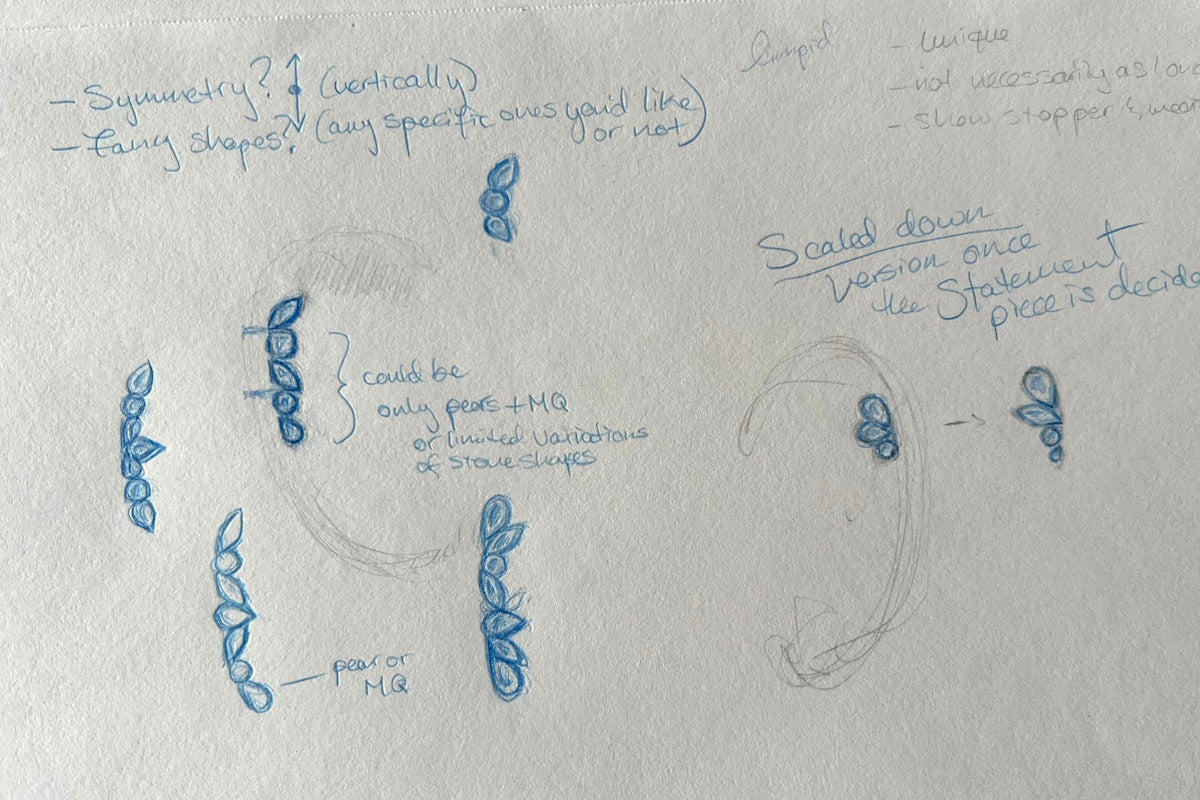 - Symmetry? (vertically)
- Fancy shapes? (any specific ones you'd like
or not)
- Unique
- not necessarily as
- show stopper &
Scaled down
version once
the Statement
piece is decide
could be
only pears + MQ
or limited variations
of stone shapes
pear or
MQ